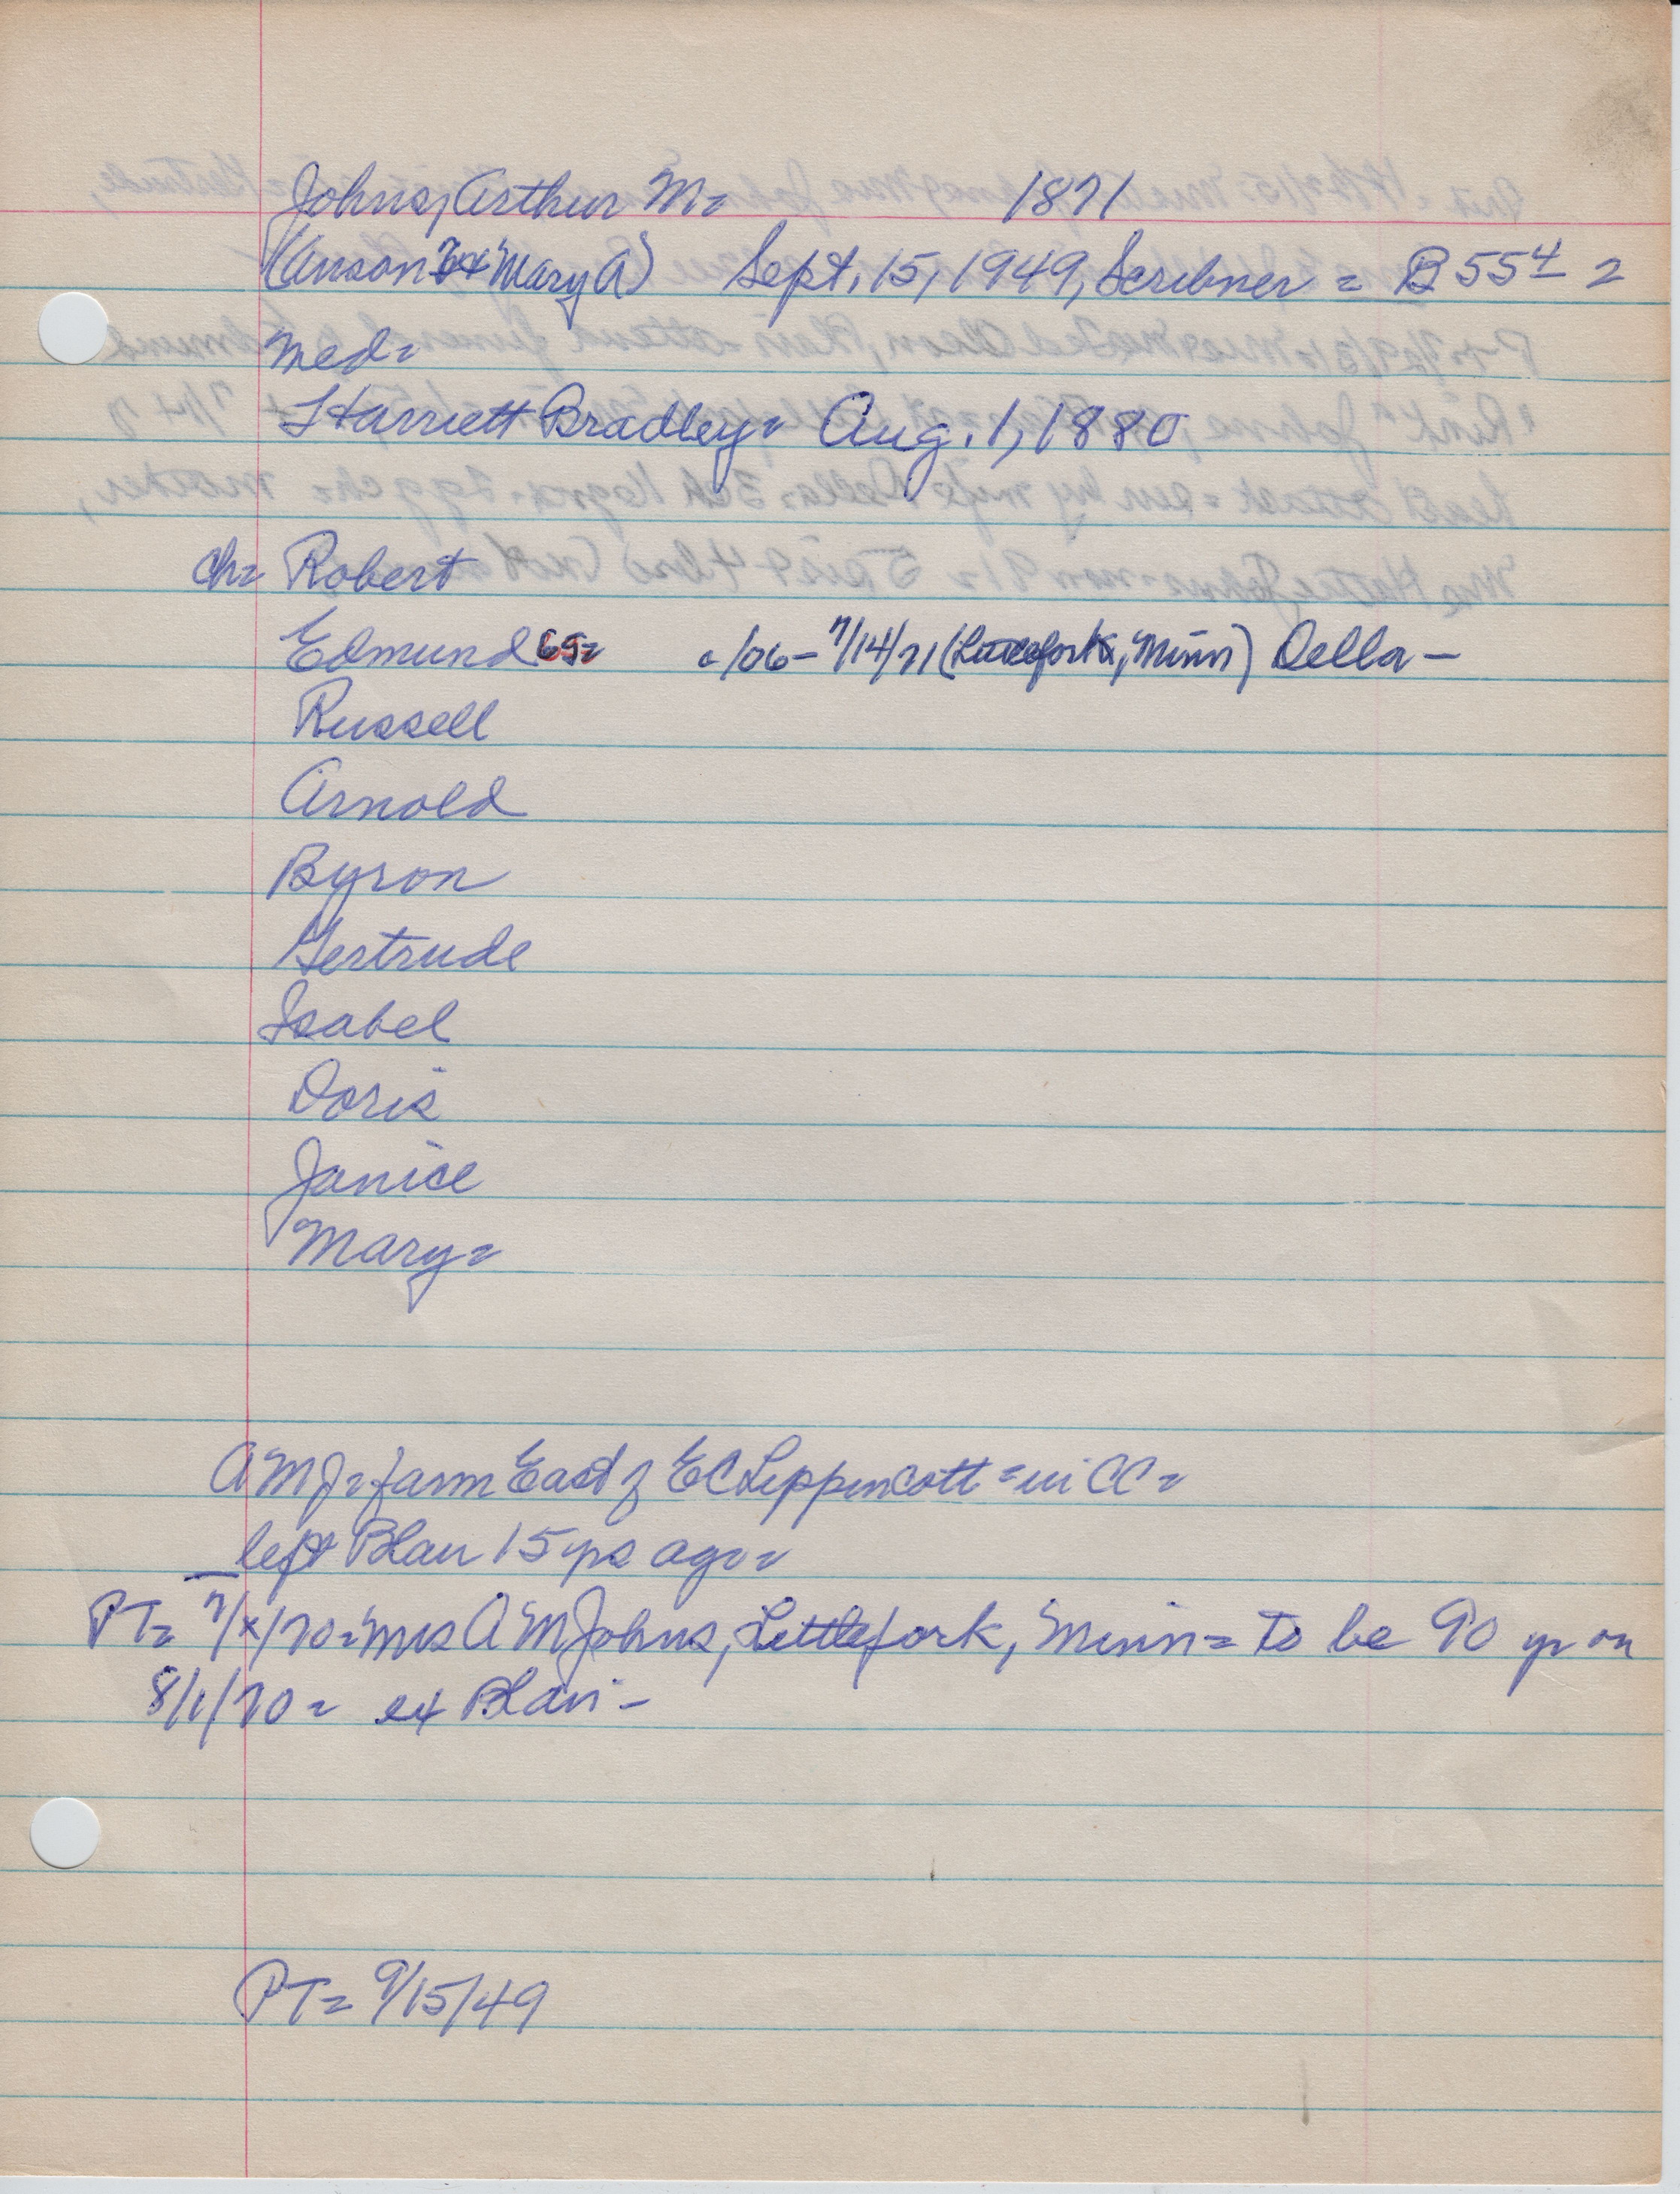 Johns, Arthur M= 1871
(Anson & Mary A) Sept. 15, 1949, Scribner = B 55 4 =
med=
Harriett Bradley= Aug. 1, 1880
ch= Robert
Edmund 65= c/06- 7/14/71 (Littlefork, Minn) Della-
Russell
Arnold
Byron
Gertrude
Isabel
Doris
Janice
Mary=
AMJ= farm East of EC Lippencott = in CC=
left Blair 15 yrs ago=
PT= 7/x/70= Mrs A M Johns, Littlefork, Minn= to be 90 yr on
8/1/70= ex Blair-
PT= 9/15/49